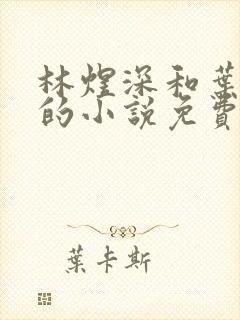 林煋深和葉
的小說免費
葉卡斯